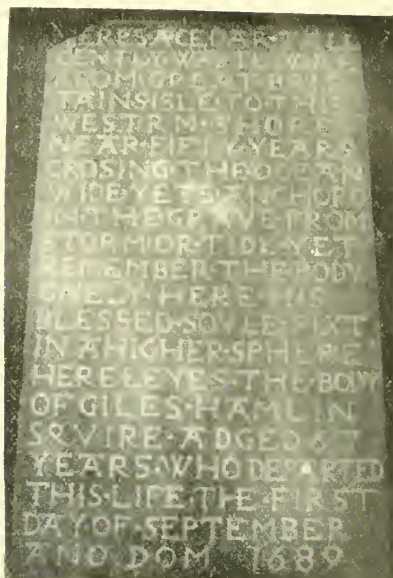 HERES·A·CEDAR·TALL
GENTLY·WAFTED
FROM·GREAT·BRI
TAINS·ISLE·TO·THIS
WESTRN·SHORE
NEAR·FIFTY·YEARS
CROSING·THE·OCEAN
WIDE·YETS·ANCHORD
IN·THE·GRAVE·FROM
STORM·OR·TIDE·YET
REMEMBER·THE·BODY
ONELY·HERE·HIS
BLESSED·SOULE·FIXT
IN·A·HIGHER·SPHERE
HERE·LEYES·THE·BODY
OF·GILES·HAMLIN
SQVIRE·ADGED·67
YEARS·WHO·DEPARTED
THIS·LIFE·THE·FIRST
DAY·OF·SEPTEMBER
ANO·DOM 1689